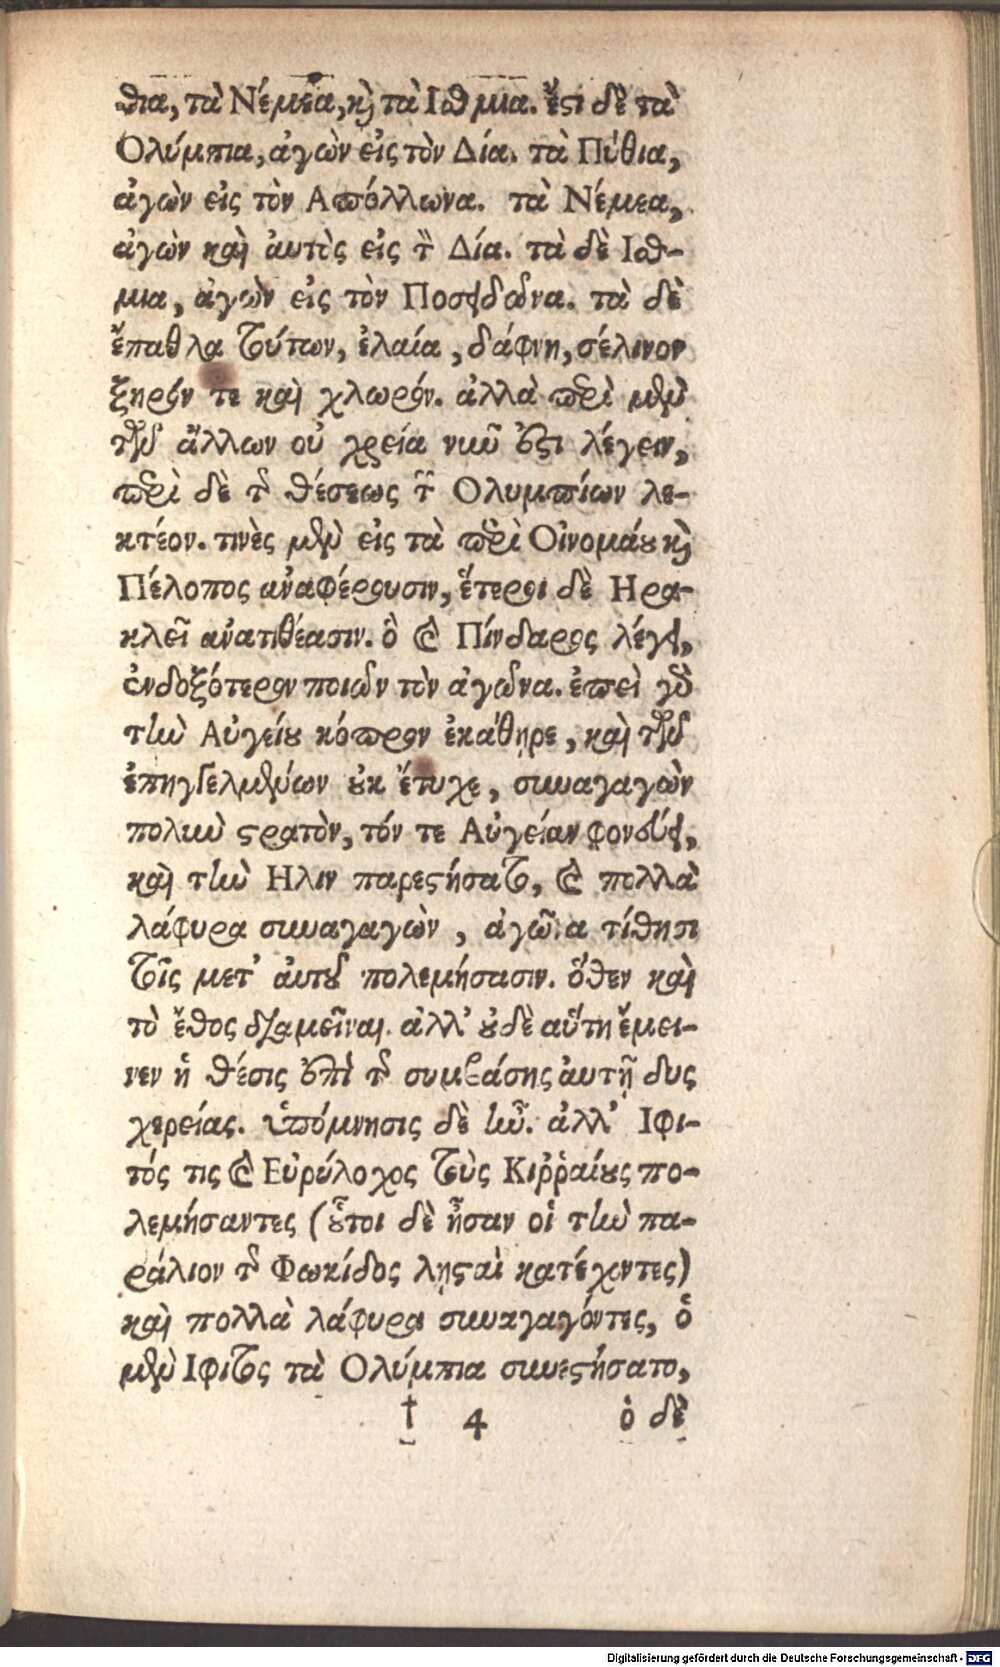 θια, τὰ Νέμεα, καὶ τὰ Ιϑμια. ἔστι δὲ τὰ
Ολύμπια, ἀγὼν εἰς τὸν Δία. τὰ Πύθια,
ἀγὼν εἰς τὸν Απόλλωνα. τὰ Νέμεα,
ἀγὼν καὶ ἀυτὸς εἰς τὸν Δία. τὰ δὲ Ιϑ-
μια, ἀγὼν εἰς τὸν Ποσειδῶνα. τὰ δὲ
ἔπαθλα τούτων, ἐλαία, δάφνη, σέλινον
ξηρόν τε καὶ χλωρόν. ἀλλὰ περὶ μὲν
τῶν ἄλλων οὐ χρεία νῦν ἐστι λέγειν,
περὶ δὲ τῆς θέσεως τῶν Ολυμπίων λε-
κτέον. τινὲς μὲν εἰς τὰ περὶ Οἰνομάου καὶ
Πέλοπος ἀναφέρουσιν, ἕτεροι δὲ Ηρα-
κλεῖ ἀνατιθέασιν. ὃ καὶ Πίνδαρος λέγει,
ἐνδοξότερον ποιῶν τὸν ἀγῶνα. ἐπεὶ γὰρ
τὴν Αὐγείου κόπρον ἐκάθῃρε, καὶ τῶν
ἐπηγγελμένων οὐκ ἔτυχε, συναγαγὼν
πολὺν στρατὸν, τόν τε Αὐγείαν φονεύει,
καὶ τὴν Ηλιν παρεστήσατο, καὶ πολλὰ
λάφυρα συναγαγὼν, ἀγῶνα τίθησι
τοῖς μετ' ἀυτοῦ πολεμήσασιν. ὅθεν καὶ
τὸ ἔθος διαμεῖναι. ἀλλ' οὐδὲ αὕτη ἔμει-
νεν ἡ θέσις ἐπὶ τῆς συμβάσης ἀυτῇ δυς
χερείας. ὑπόμνησις δὲ ἦν. ἀλλ' Ιφι-
τός τις καὶ Εὐρύλοχος τοὺς Κιῤῥαίους πο-
λεμήσαντες (οὗτοι δὲ ἦσαν οἱ τὴν πα-
ράλιον τῆς Φωκίδος λῃσταὶ κατέχοντες)
καὶ πολλὰ λάφυρα συναγαγόντες, ὁ
μὲν Ιφιτος τὰ Ολύμπια συνεστήσατο,
† 4 ὁ δὲ
Digitalisierung gefördert durch die Deutsche Forschungsgemeinschaft - DFG